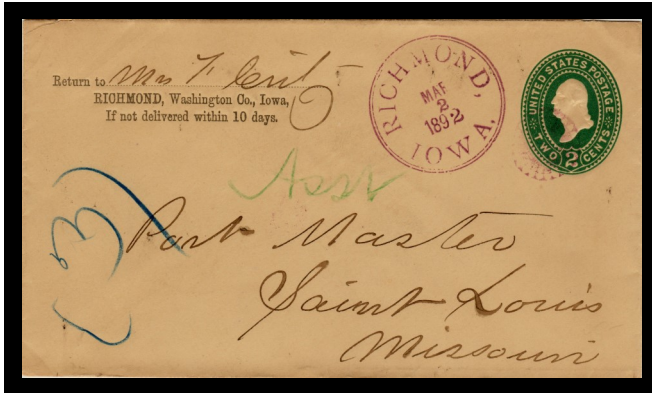 Return to Mrs F
RICHMOND, Washington Co., Iowa,
If not delivered within 10 days.
RICHMOND,
MAR
2
1892
IOWA.
UNITED STATES POSTAGE
TWO 2 CENTS
Asst
Post Master
Saint Louis
Missouri